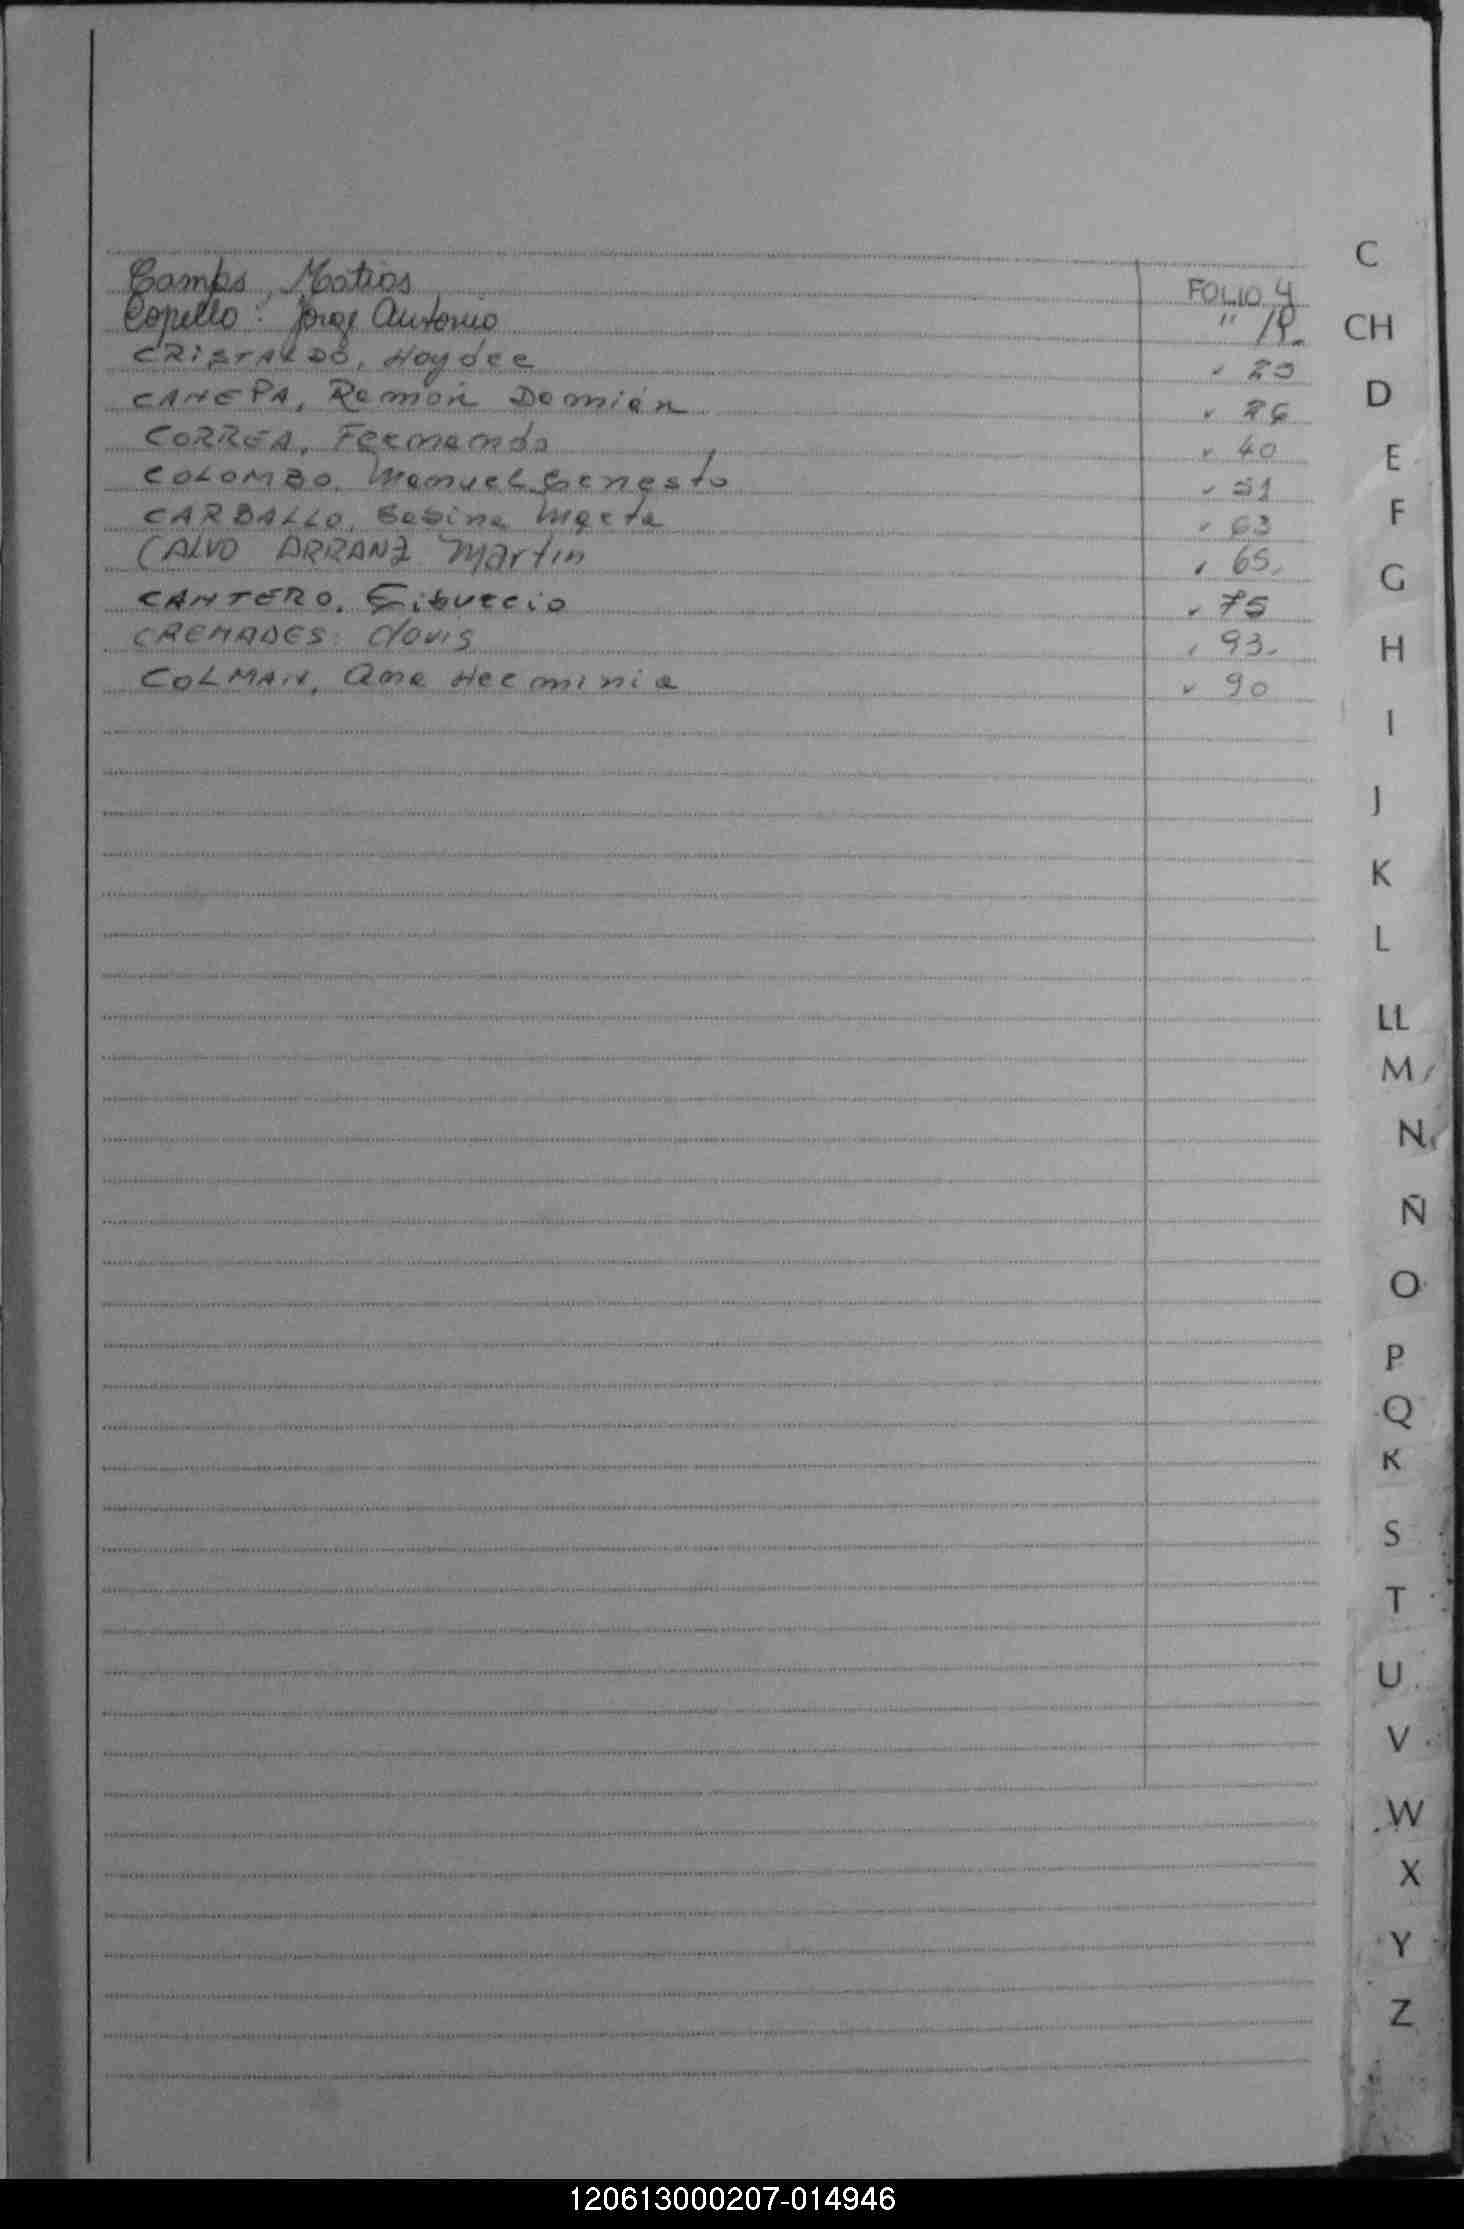 Camps, Matias FOLIO 4
Copello: Jorge Antonio " 19.
CRISTALDO, Haydee " 20
CANEPA, Ramón Damián " 26
CORREA, Fernando " 40
COLOMBO, Manuel Ernesto " 51
CARBALLO, Sabina Marta " 63
CALVO ARRANZ Martin " 65.
CANTERO, " 75
CREMADES: Clovis " 93.
COLMAN, Ana Herminia " 90
C
CH
D
E
F
G
H
I
J
K
L
LL
M
N
Ñ
O
P
Q
R
S
T
U
V
W
X
Y
Z
120613000207-014946